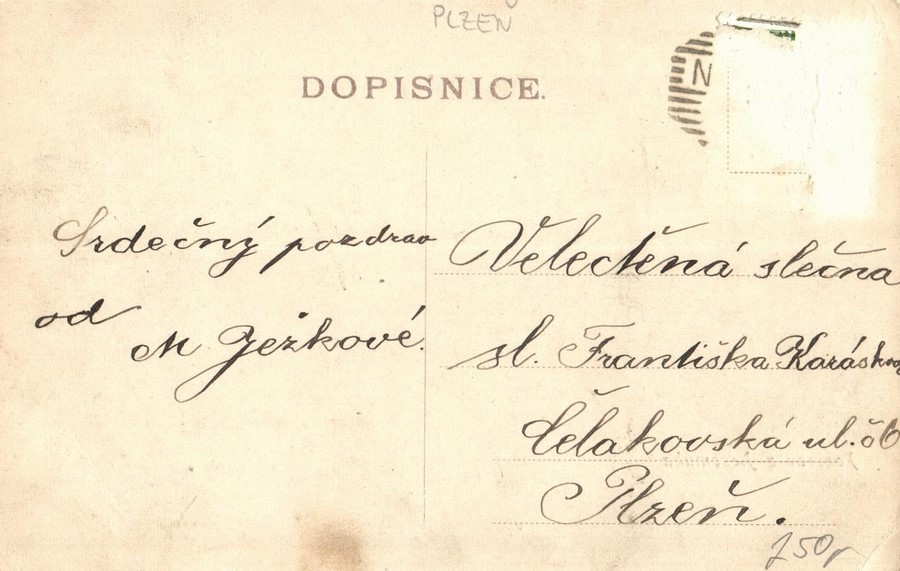 PLZEŇ
DOPISNICE.
Srdečný pozdrav
od
M Ježkové.
Velectěná slečna
sl. Františka
Čelakovská ul. č 6
Plzeň.